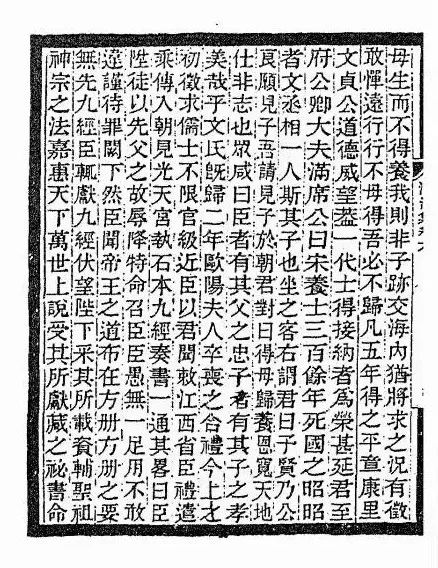 母生而不得養我則非子跡交海內猶將求之況有徵
敢憚遠行行不母得吾必不歸凡五年得之平章康里
文貞公道德威望葢一代士得接納者爲榮甚延君至
府公卿大夫滿席公曰宋養士三百餘年死國之昭昭
者文丞相一人斯其子也坐之客右謂君曰子賢乃公
良願見子吾請見子於朝君對曰得母歸養恩寬天地
仕非志也眾咸曰臣者有其父之忠子者有其子之孝
美哉乎文氏旣歸二年歐陽夫人卒喪之合禮今上才
初徵求儒士不限官級近臣以君聞敕江西省臣禮遣
乘傳入朝見光天宮執石本九經奏書一通其畧曰臣
陛徒以先父之故辱降特命召臣臣愚無一足用不敢
違謹待罪闕下然臣聞帝王之道布在方册方册之要
無先九經臣輒獻九經伏望陛下采其所載資輔聖祖
神宗之法嘉惠天下萬世上說受其所獻藏之祕書命